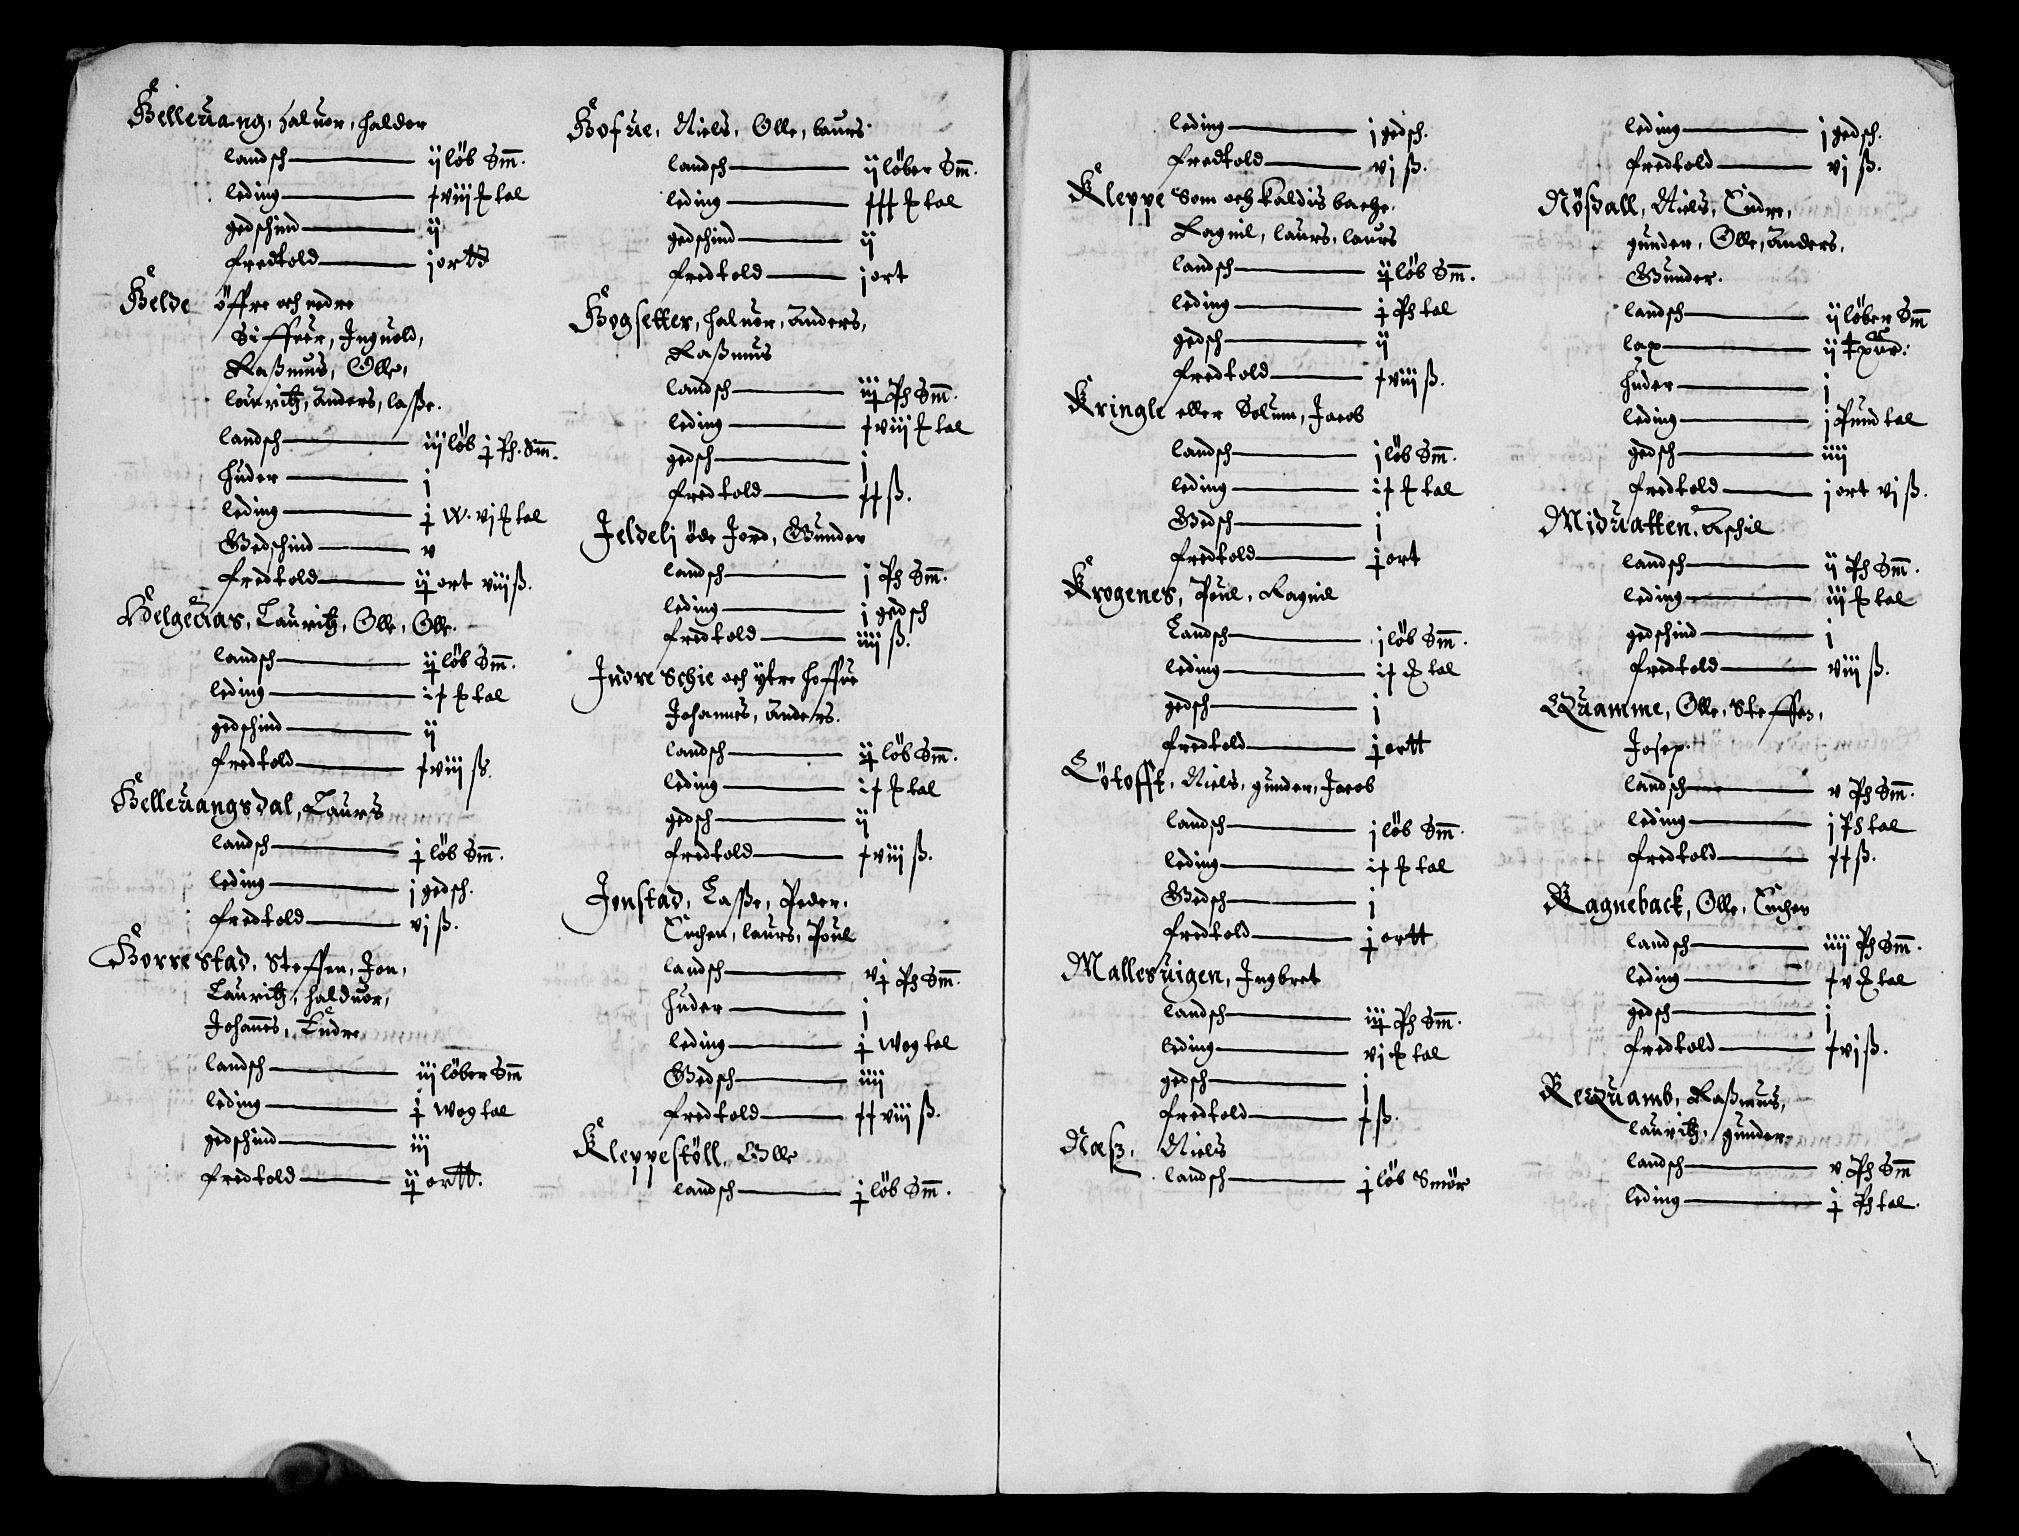 Helleuang, Haluor, halder
landsch — ij löb Sm.
leding — ƚviij ℔ tal
gedschind — ij
fredtold — j ortt
Helde öffre och nedre
Siffuer, Inguold,
Raßmus, Olle,
lauritz, Anders, laße.
landsch — iij löb ɉ Ph. Sm.
huder — j
leding — ɉ W. vj ℔ tal
Gedschind — v
fredtold — iɉ ort viij ß.
Helgeuas, Lauritz, Olle, Olle.
landsch — iɉ löb Sm.
leding — iƚ ℔ tal
gedschind — ij
fredtold — ƚviij ß.
Helleuangsdal, Laurs
landsch — ɉ löb Sm.
leding — j gedsch.
fredtold — vj ß.
Horrestad, Steffen, Jon,
Lauritz, halduor,
Johanes, Endre
landsch — iij löber Sm
leding — ɉ Wog tal
gedschind — iij
fredtold — iɉ ortt.
Hofue, Niels, Olle, laurs.
landsch — ij löber Sm.
leding — ƚƚƚ ℔ tal
gedschind — ij
fredtold — j ort
Hogsetter, haluor, Anders,
Raßmus
landsch — iiɉ Ph Sm.
leding — ƚviij ℔ tal
gedsch — j
fredtold — ƚƚ ß.
Jeldeli öde Jord, Gunder
landsch — j Ph Sm.
leding — j gedsch
fredtold — iiij ß.
Indre Schie och ytre hoffue
Johannes, Anders.
landsch — iɉ löb Sm.
leding — iƚ ℔ tal
gedsch — ij
fredtold — ƚviij ß.
Jonstad, Laße, Peder,
Enchen, laurs, Poul
landsch — vɉ Ph Sm.
huder — j
leding — ɉ Wog tal
Gedsch — iiij
fredtold — ƚƚviij ß.
Kleppestöll, Olle
landsch — ɉ löb Sm.
leding — j gedsch.
fredtold — vj ß.
Kleppe Som och kaldis bache.
Ragnil, laurs, laurs
landsch — iɉ löb Sm.
leding — ɉ Ph tal
gedsch — ij
fredtold — ƚviij ß.
Kringle eller Solum, Jacob
landsch — j löb Sm.
leding — iƚ ℔ tal
Gedsch — j
fredtold — ɉ ort
Krogenes, Poul, Ragnil
Landsch — j löb Sm.
leding — iƚ ℔ tal
gedsch — j
fredtold — ɉ ortt
Lötofft, Niels, gunder, Jacob
landsch — j löb Sm.
leding — iƚ ℔ tal
Gedsch — j
fredtold — ɉ ortt
Mallesuigen, Ingbret
landsch — iiɉ Ph Sm.
leding — vj ℔ tal
gedsch — j
fredtold — ƚ ß.
Næsz, Niels
landsch — ɉ löb Smör
leding — j gedsch.
fredtold — vj ß.
Nößdall, Niels, Endre,
gunder, Olle, Anders,
Gunder.
landsch — ij löber Sm
lax — ij
huder — j
leding — j Pund tal
gedsch — iiij
fredtold — j ort vj ß.
Miduatten, Aschil
landsch — ij Ph Sm.
leding — iij ℔ tal
gedschind — j
fredtold — viij ß.
Quamme, Olle, Steffen,
Josep.
landsch — v Ph Sm.
leding — j Ph tal
fredtold — ƚƚ ß.
Ragneback, Olle, Enchen
landsch — iiij Ph Sm.
leding — ƚv ℔ tal
gedsch — j
fredtold — ƚvj ß.
Requamb, Raßmus,
lauritz, gunder
landsch — v Ph Sm
leding — ɉ Ph tal.